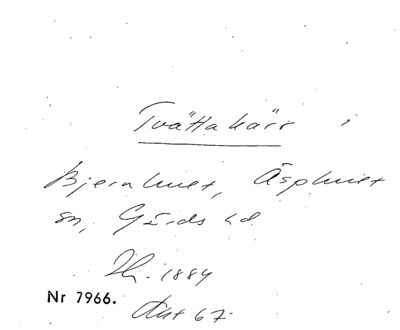 Tvättakärr
Bjernhuet, Äsphuet
sn, Gärds hd
Th. 1884
Nr 7966.
Akt 67